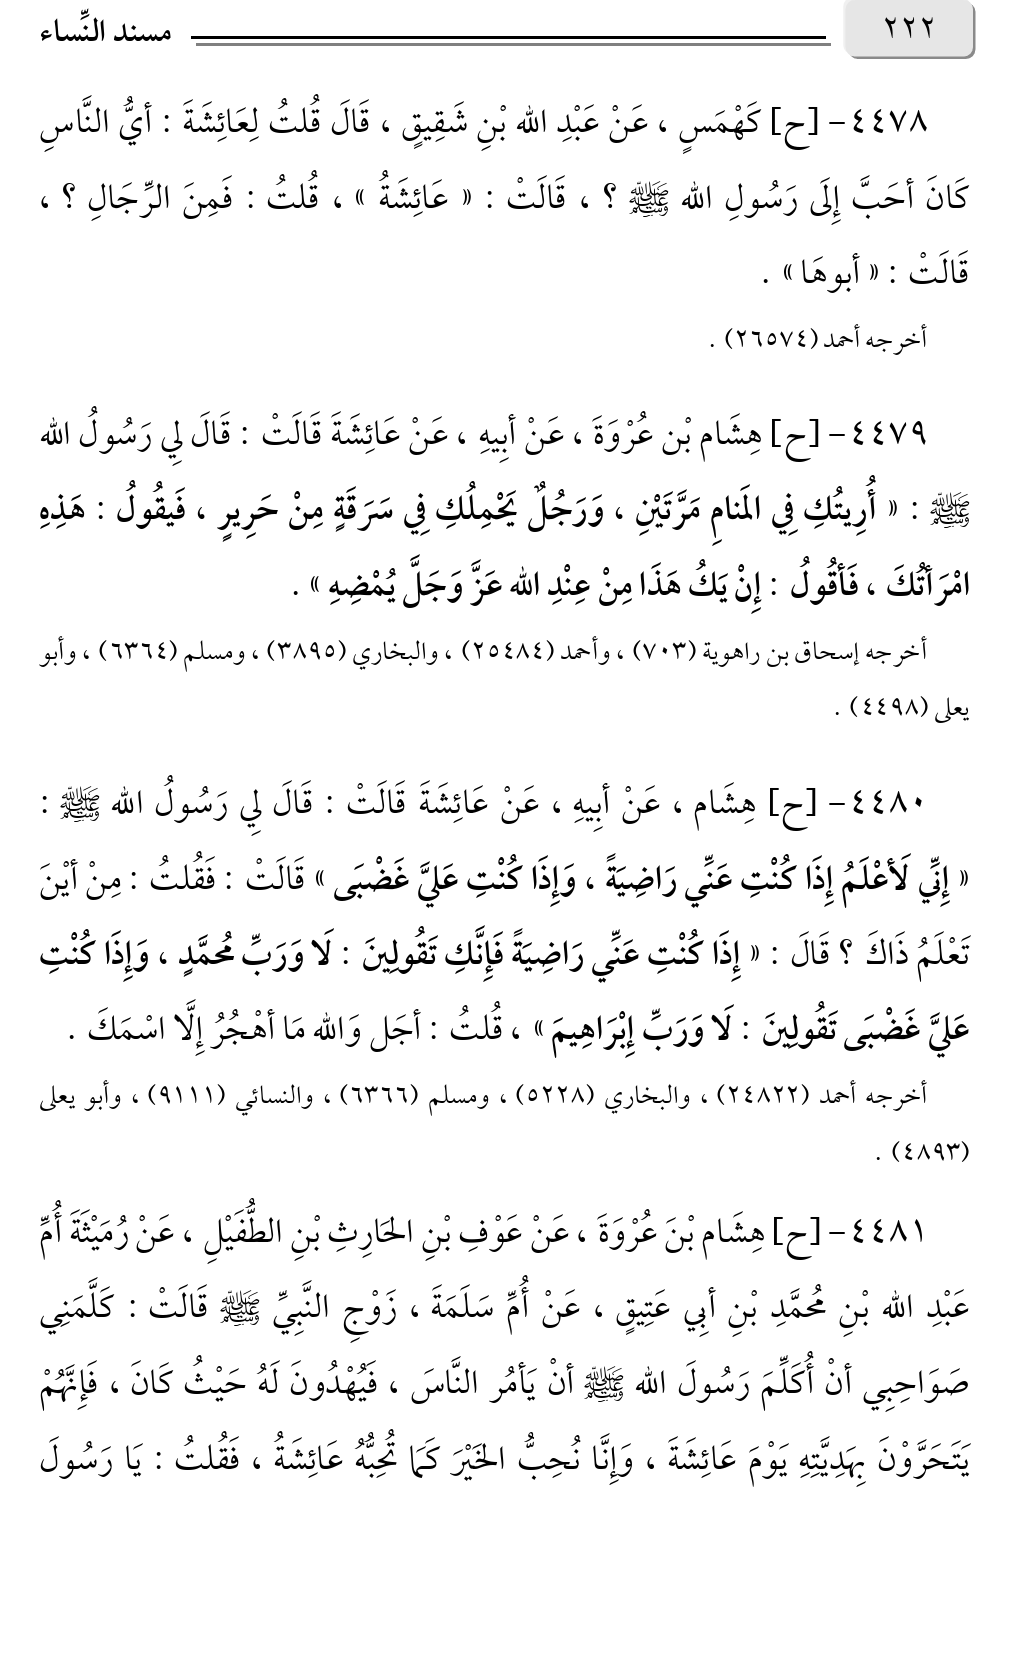 ٢٢٢
مسند النِّساء
٤٤٧٨- [ح] كَهْمَسٍ ، عَنْ عَبْدِ الله بْنِ شَقِيقٍ ، قَالَ قُلتُ لِعَائِشَةَ : أيُّ النَّاسِ
كَانَ أحَبَّ إِلَى رَسُولِ الله ﷺ ؟ ، قَالَتْ : « عَائِشَةُ » ، قُلتُ : فَمِنَ الرِّجَالِ ؟ ،
قَالَتْ : « أبوهَا » .
أخرجه أحمد (٢٦٥٧٤) .
٤٤٧٩- [ح] هِشَام بْن عُرْوَةَ ، عَنْ أبِيهِ ، عَنْ عَائِشَةَ قَالَتْ : قَالَ لِي رَسُولُ الله
ﷺ : « أُرِيتُكِ فِي المَنامِ مَرَّتَيْنِ ، وَرَجُلٌ يَحْمِلُكِ فِي سَرَقَةٍ مِنْ حَرِيرٍ ، فَيقُولُ : هَذِهِ
امْرَأتُكَ ، فَأقُولُ : إِنْ يَكُ هَذَا مِنْ عِنْدِ الله عَزَّ وَجَلَّ يُمْضِهِ » .
أخرجه إسحاق بن راهوية (٧٠٣) ، وأحمد (٢٥٤٨٤) ، والبخاري (٣٨٩٥) ، ومسلم (٦٣٦٤) ، وأبو
يعلى (٤٤٩٨) .
٤٤٨٠- [ح] هِشَام ، عَنْ أبِيهِ ، عَنْ عَائِشَةَ قَالَتْ : قَالَ لِي رَسُولُ الله ﷺ :
« إِنِّي لَأعْلَمُ إِذَا كُنْتِ عَنِّي رَاضِيَةً ، وَإِذَا كُنْتِ عَليَّ غَضْبَى » قَالَتْ : فَقُلتُ : مِنْ أيْنَ
تَعْلَمُ ذَاكَ ؟ قَالَ : « إِذَا كُنْتِ عَنِّي رَاضِيَةً فَإِنَّكِ تَقُولِينَ : لَا وَرَبِّ مُحمَّدٍ ، وَإِذَا كُنْتِ
عَليَّ غَضْبَى تَقُولِينَ : لَا وَرَبِّ إِبْرَاهِيمَ » ، قُلتُ : أجَل وَالله مَا أهْجُرُ إِلَّا اسْمَكَ .
أخرجه أحمد (٢٤٨٢٢) ، والبخاري (٥٢٢٨) ، ومسلم (٦٣٦٦) ، والنسائي (٩١١١) ، وأبو يعلى
(٤٨٩٣) .
٤٤٨١- [ح] هِشَام بْنَ عُرْوَةَ ، عَنْ عَوْفِ بْنِ الحَارِثِ بْنِ الطُّفَيْلِ ، عَنْ رُمَيْثَةَ أُمِّ
عَبْدِ الله بْنِ مُحمَّدِ بْنِ أبِي عَتِيقٍ ، عَنْ أُمِّ سَلَمَةَ ، زَوْجِ النَّبِيِّ ﷺ قَالَتْ : كَلَّمَنِي
صَوَاحِبِي أنْ أُكَلِّمَ رَسُولَ الله ﷺ أنْ يَأمُر النَّاسَ ، فَيُهْدُونَ لَهُ حَيْثُ كَانَ ، فَإِنَّهُمْ
يَتَحَرَّوْنَ بِهَدِيَّتِهِ يَوْمَ عَائِشَةَ ، وَإِنَّا نُحِبُّ الخَيْرَ كَمَا تُحِبُّهُ عَائِشَةُ ، فَقُلتُ : يَا رَسُولَ